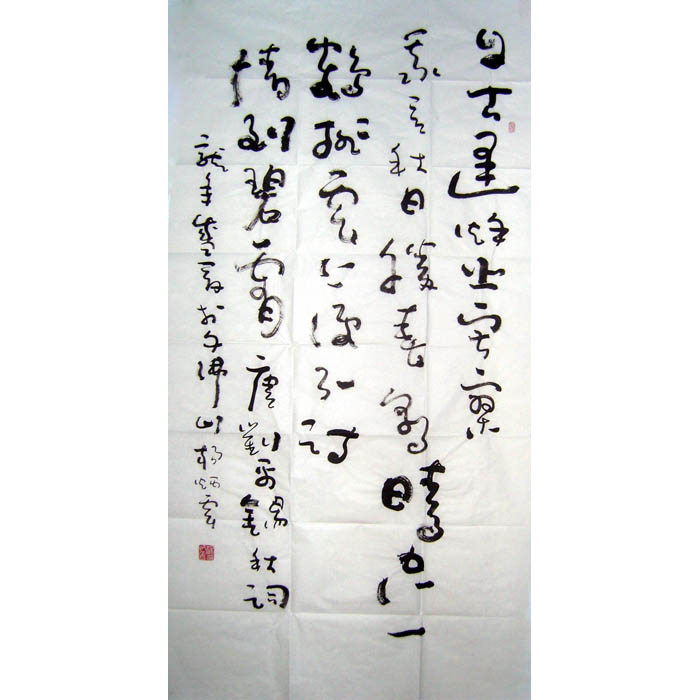 自古逢秋悲寂寥
我言秋日勝春朝晴空一
鶴排雲上便引詩
情到碧霄唐劉禹錫秋詞
龍年盛夏於千佛山楊炳雲